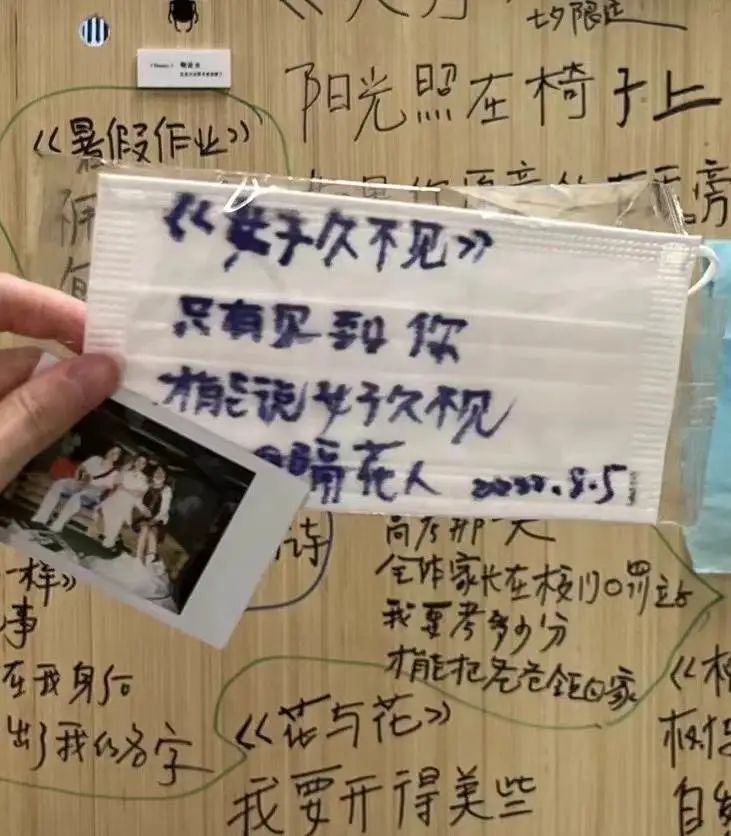 七夕限定
阳光照在椅子上
《暑假作业》
《好久不见》
只有见到你
才能说好久不见
隔花人
诗
高考那一天
全体家长在校门口罚站
我要考多少分
才能把爸爸领回家
一样》
事
在我身后
出了我的名字
《花与花》
我要开得美些